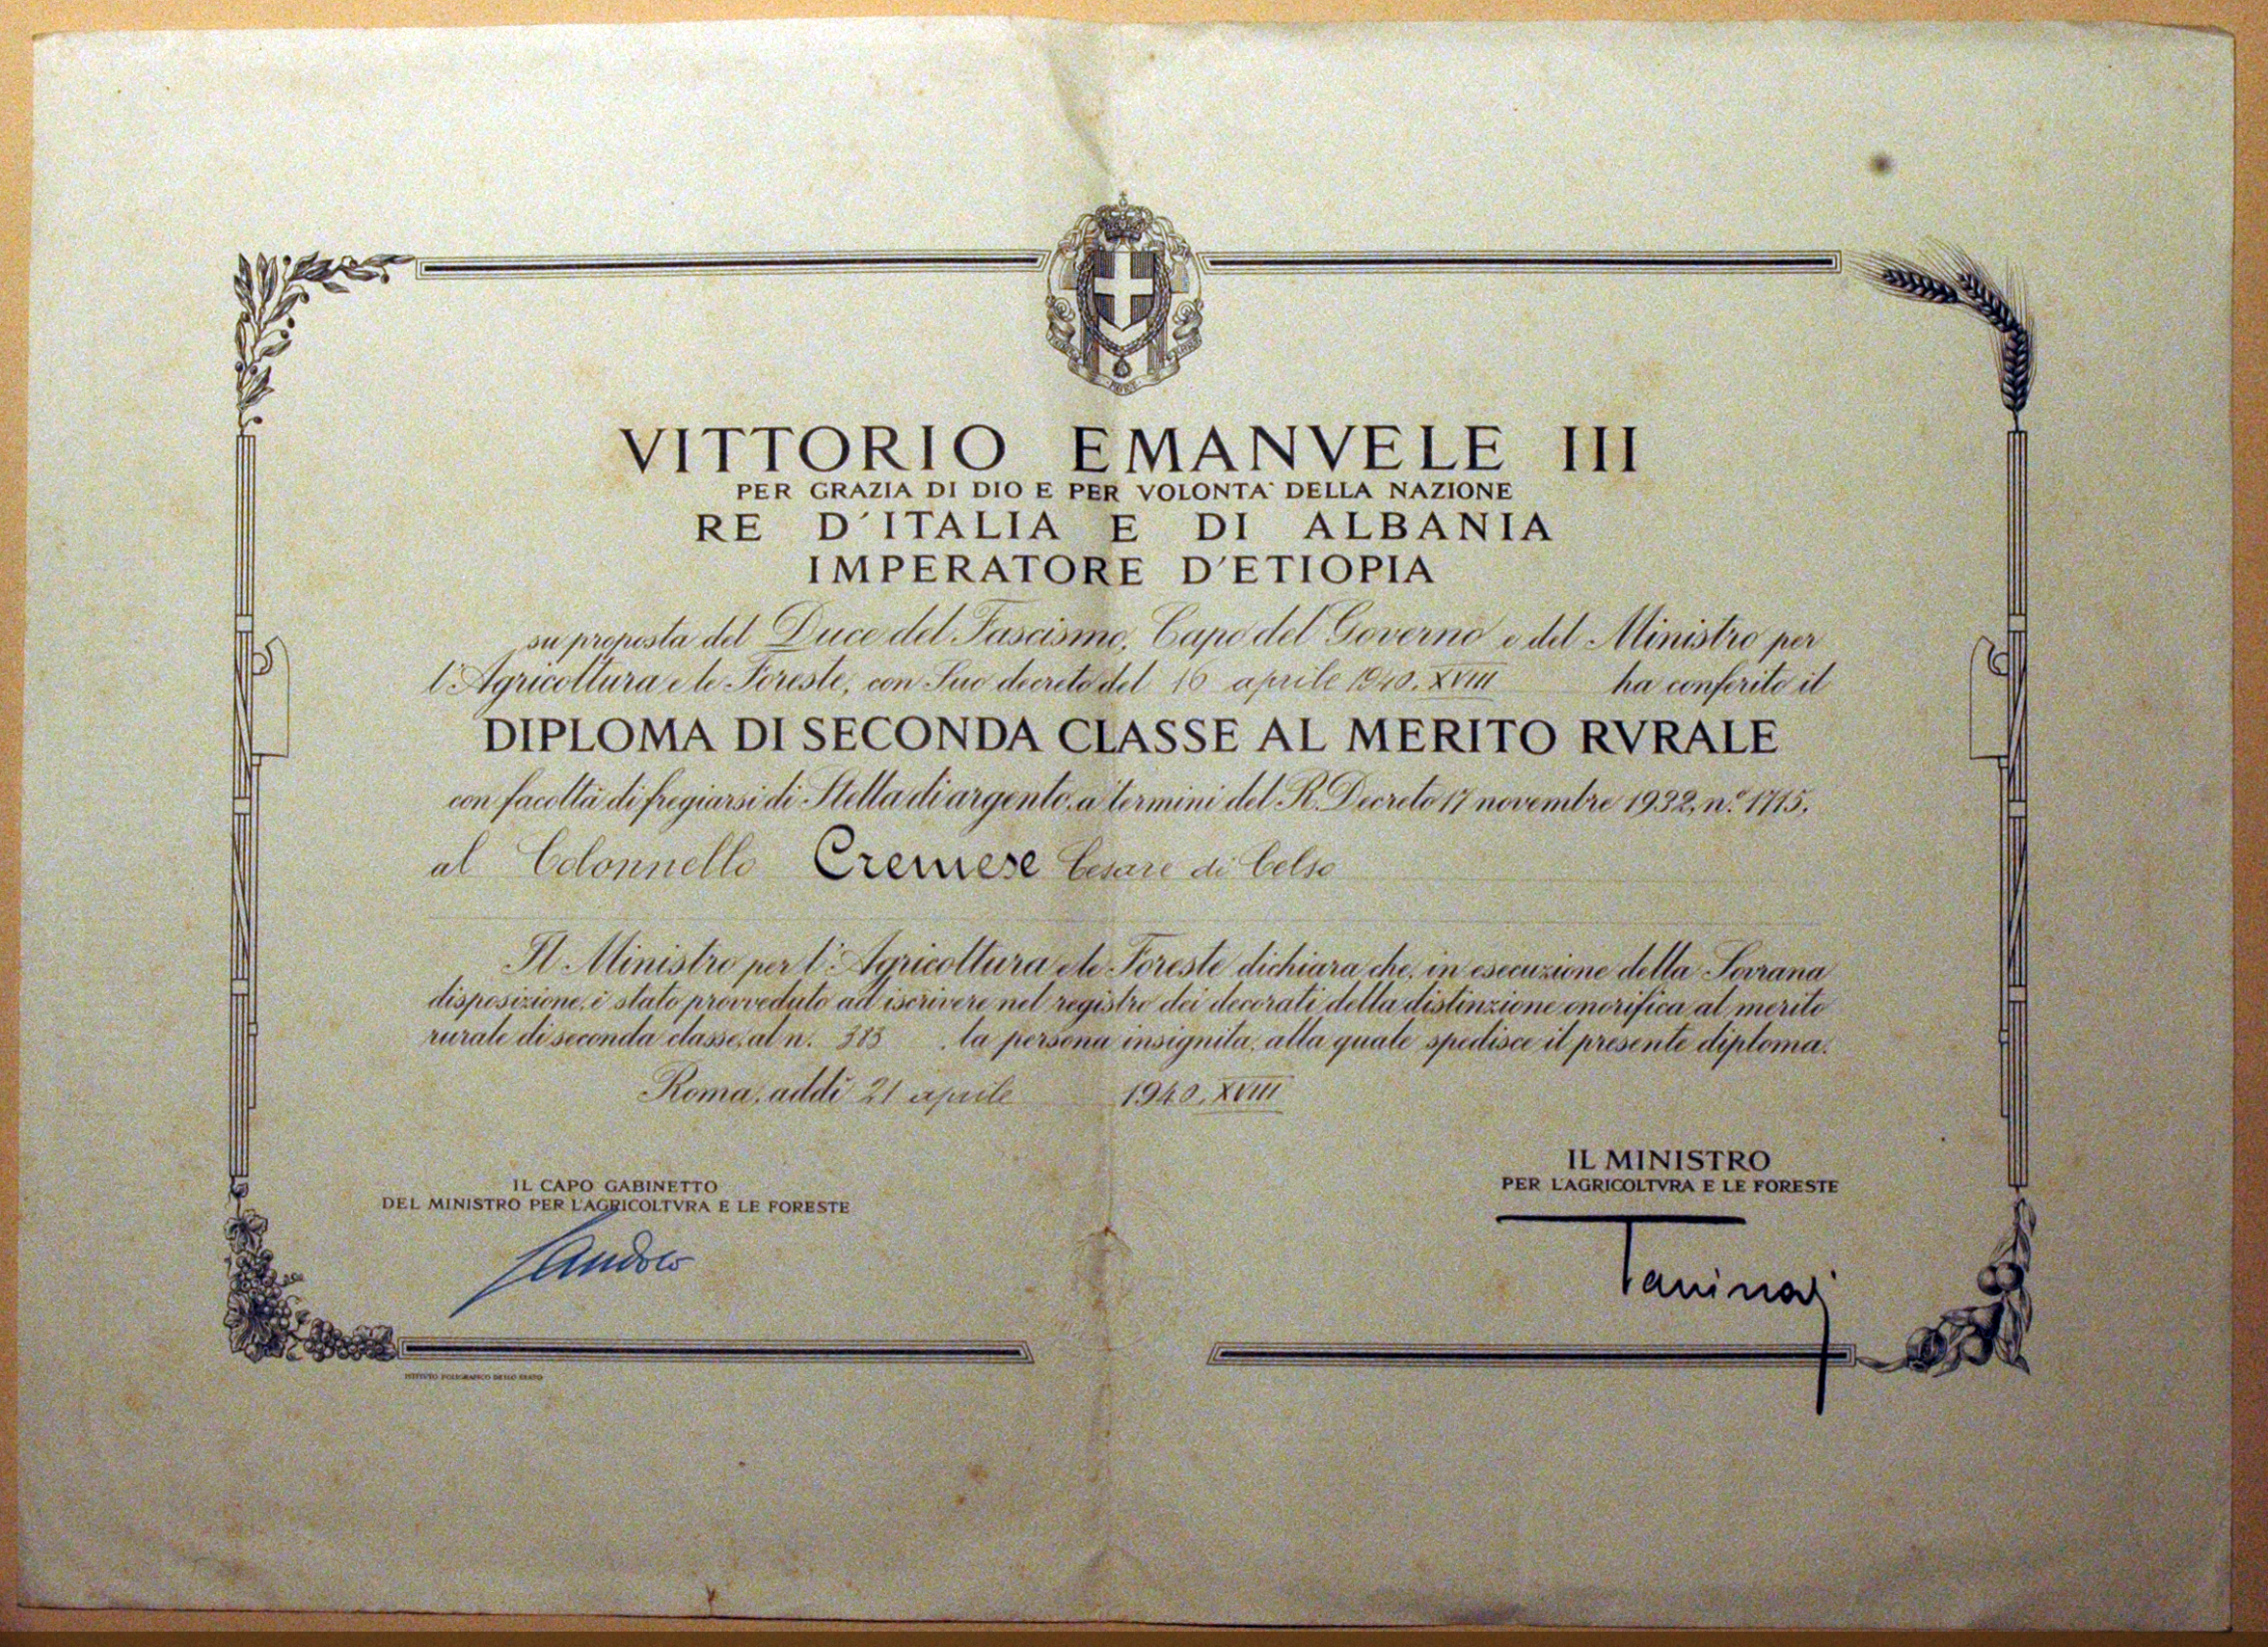 VITTORIO EMANVELE III
PER GRAZIA DI DIO E PER VOLONTA` DELLA NAZIONE
RE D'ITALIA E DI ALBANIA
IMPERATORE D'ETIOPIA
su proposta del Duce del Fascismo, Capo del Governo e del Ministro per
l'Agricoltura e le Foreste, con Suo decreto del 16 aprile 1940. XVIII ha conferito il
DIPLOMA DI SECONDA CLASSE AL MERITO RVRALE
con facoltà di fregiarsi di Stella di argento, a termini del R. Decreto 17 novembre 1932, n.º 1715,
al Colonnello Cremese Cesare di Celso
Il Ministro per l'Agricoltura e le Foreste dichiara che, in esecuzione della Sovrana
disposizione, è stato provveduto ad iscrivere nel registro dei decorati della distinzione onorifica al merito
rurale di seconda classe, al n. 383 la persona insignita, alla quale spedisce il presente diploma.
Roma, addì 21 aprile 1940, XVIII
IL CAPO GABINETTO
DEL MINISTRO PER L'AGRICOLTVRA E LE FORESTE
IL MINISTRO
PER L'AGRICOLTVRA E LE FORESTE
Tassinari
ISTITUTO POLIGRAFICO DELLO STATO